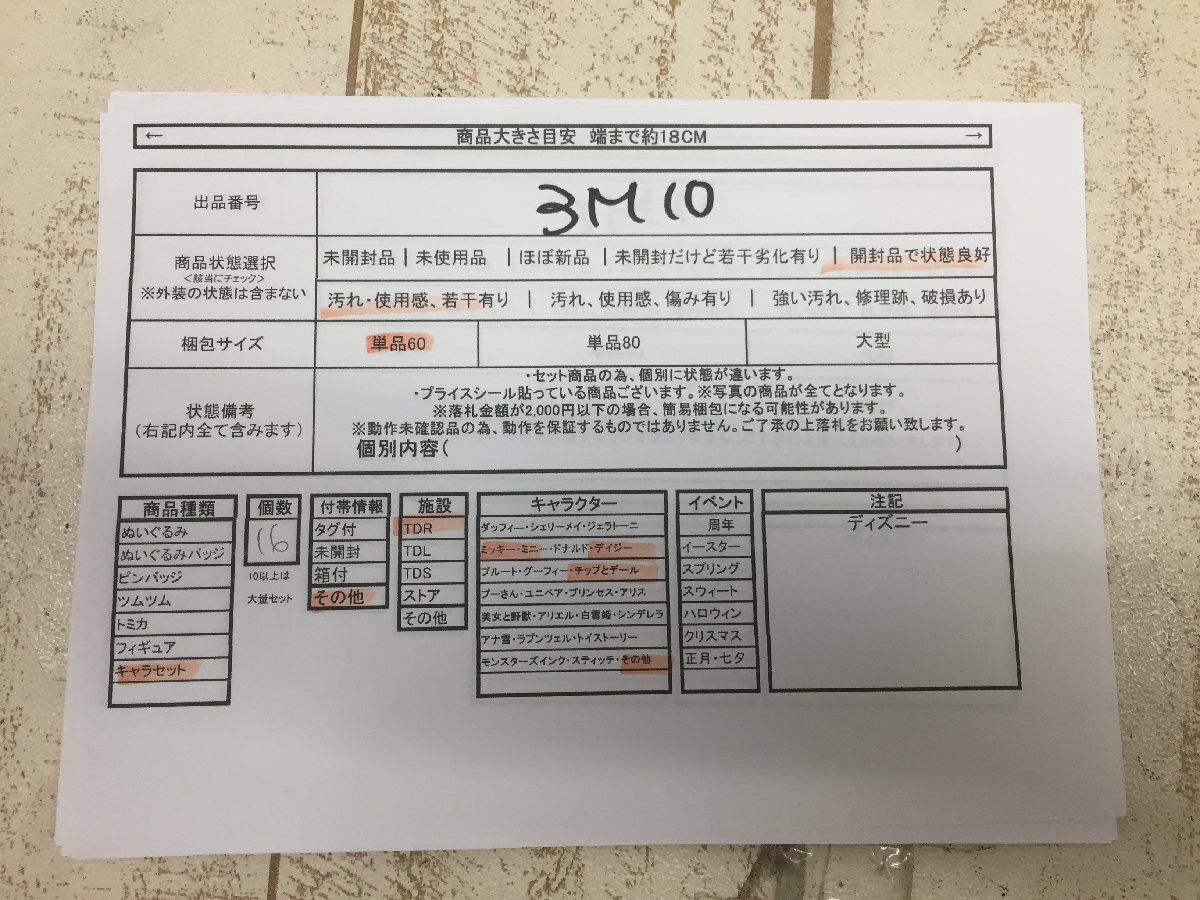 ← 商品大きさ目安 端まで約18CM →
出品番号 3M10
商品状態選択
<該当にチェック>
※外装の状態は含まない
未開封品 | 未使用品 | ほぼ新品 | 未開封だけど若干劣化有り | 開封品で状態良好
汚れ・使用感、若干有り | 汚れ、使用感、傷み有り | 強い汚れ、修理跡、破損あり
梱包サイズ 単品60 単品80 大型
状態備考
(右記内全て含みます)
・セット商品の為、個別に状態が違います。
・プライスシール貼っている商品ございます。※写真の商品が全てとなります。
※落札金額が2,000円以下の場合、簡易梱包になる可能性があります。
※動作未確認品の為、動作を保証するものではありません。ご了承の上落札をお願い致します。
個別内容( )
商品種類
ぬいぐるみ
ぬいぐるみバッジ
ピンバッジ
ツムツム
トミカ
フィギュア
キャラセット
個数
16
10以上は
大量セット
付帯情報
タグ付
未開封
箱付
その他
施設
TDR
TDL
TDS
ストア
その他
キャラクター
ダッフィー・シェリーメイ・ジェラトーニ
ミッキー・ミニー・ドナルド・デイジー
プルート・グーフィー・チップとデール
プーさん・ユニベア・プリンセス・アリス
美女と野獣・アリエル・白雪姫・シンデレラ
アナ雪・ラプンツェル・トイストーリー
モンスターズインク・スティッチ・その他
イベント
周年
イースター
スプリング
スウィート
ハロウィン
クリスマス
正月・七夕
注記
ディズニー